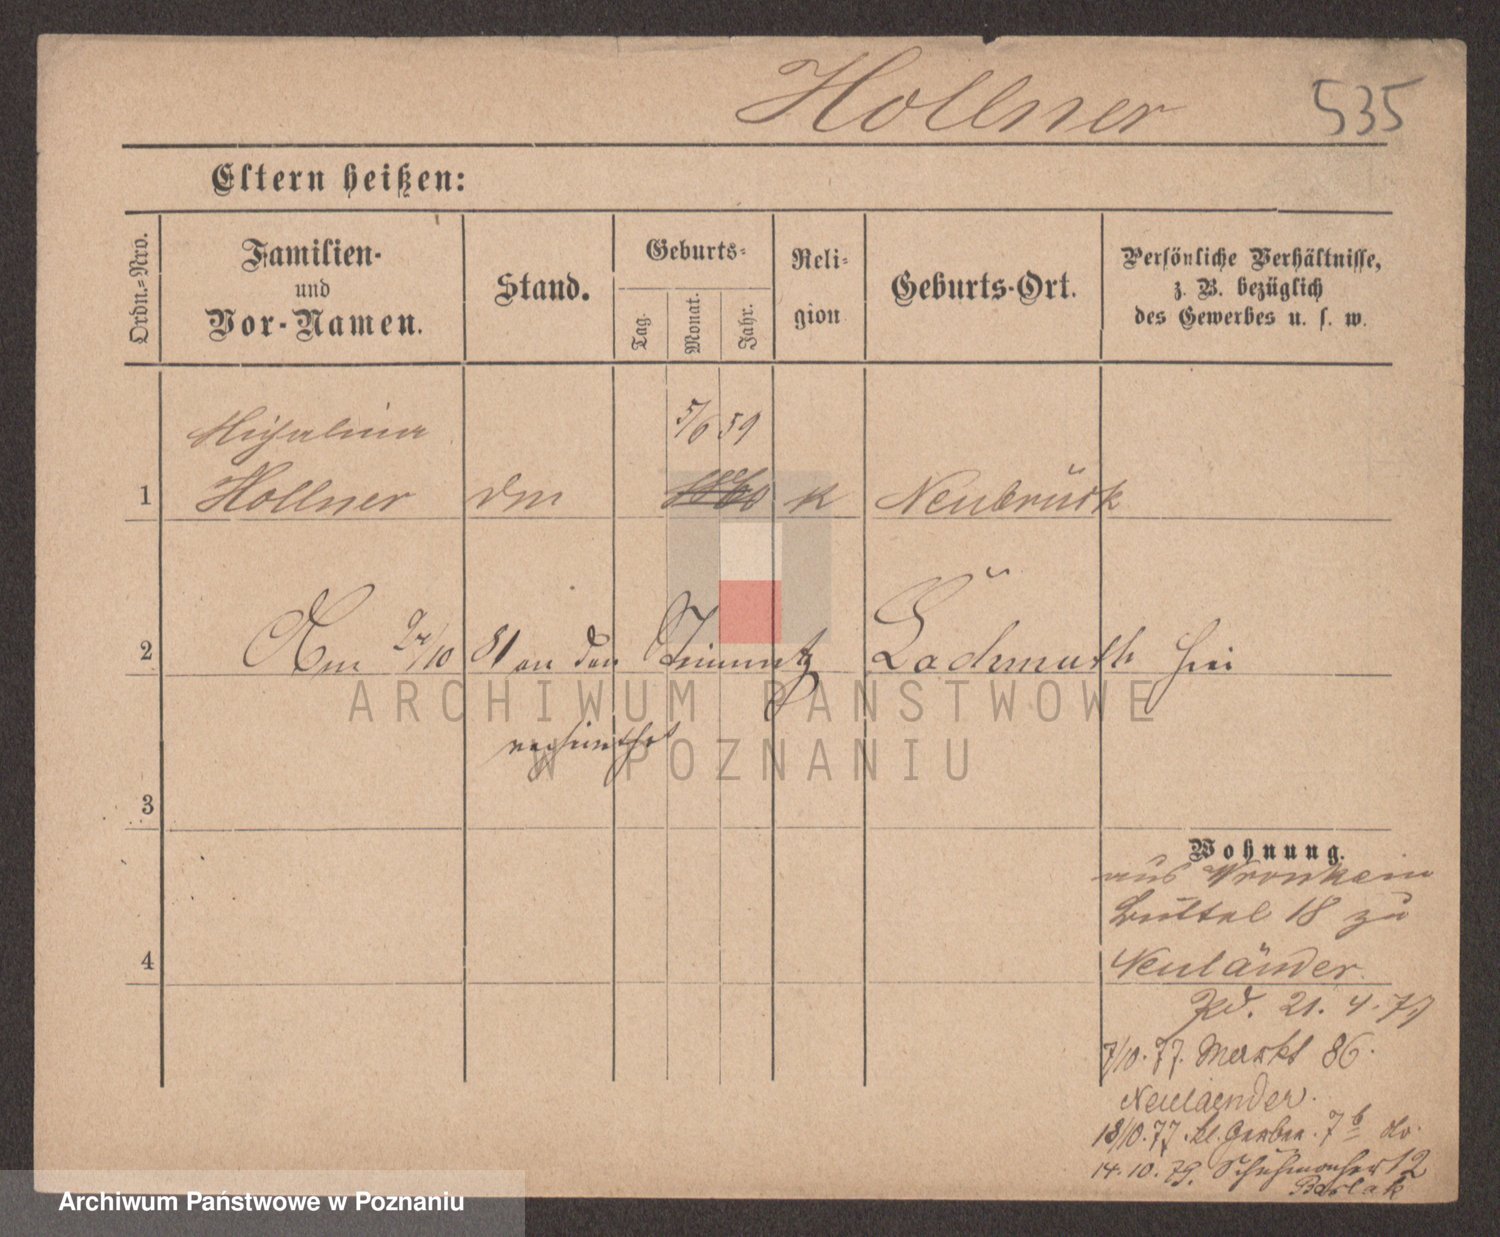 Hollner 535
Eltern heißen:
Ordn.-Nro.
Familien-
und
Vor-Namen.
Stand.
Geburts-
Tag.
Monat.
Jahr.
Reli-
gion
Geburts-Ort.
Persönliche Verhältnisse,
z. B. bezüglich
des Gewerbes u. s. w.
Michalina 5/6 59
1 Hollner k Neubrück
2 Am /10 81 an den Lachmuth hier
ARCHIWUM PAŃSTWOWE
W POZNANIU
3
Wohnung.
aus Wronke in
Büttel 18 zu
4 Neuländer
21. 4. 77
7/10. 77. Markt 86.
Neulaender.
18/10. 77. kl. Gerber. 7 b do.
14. 10. 79. Schuhmacher 12
Barlak
Archiwum Państwowe w Poznaniu